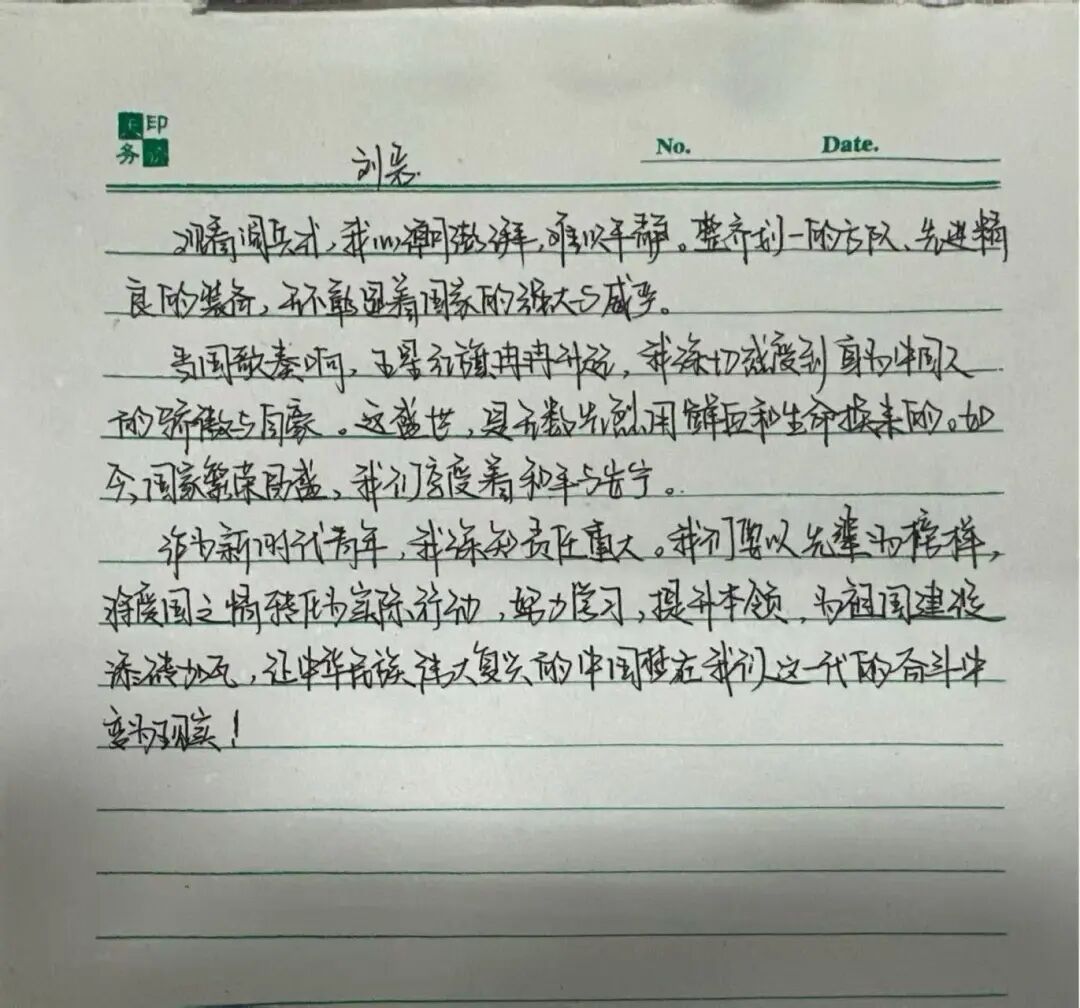 印
务
No. Date.
刘
观看阅兵式，我心潮澎湃，难以平静。整齐划一的方队、先进精
良的装备，无不彰显着国家的强大与威严。
当国歌奏响，五星红旗冉冉升起，我深切感受到身为中国人
的骄傲与自豪。这盛世，是无数先烈用鲜血和生命换来的。如
今，国家繁荣昌盛，我们享受着和平与安宁。
作为新时代青年，我深知责任重大。我们要以先辈为榜样，
将爱国之情转化为实际行动，努力学习，提升本领，为祖国建设
添砖加瓦，让中华民族伟大复兴的中国梦在我们这一代的奋斗中
变为现实！